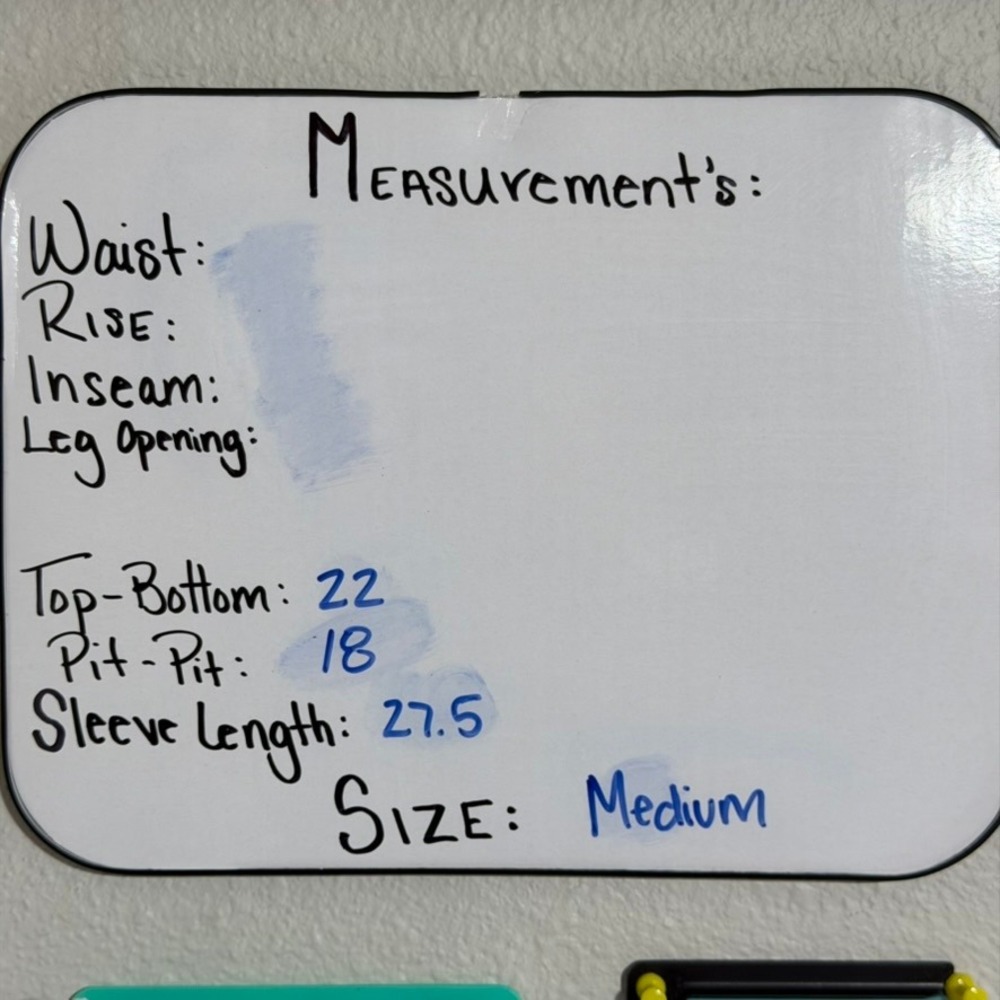 MEASurement's:
Waist:
RISE:
Inseam:
Leg Opening:
Top-Bottom: 22
Pit-Pit: 18
Sleeve Length: 27.5
SIZE: Medium